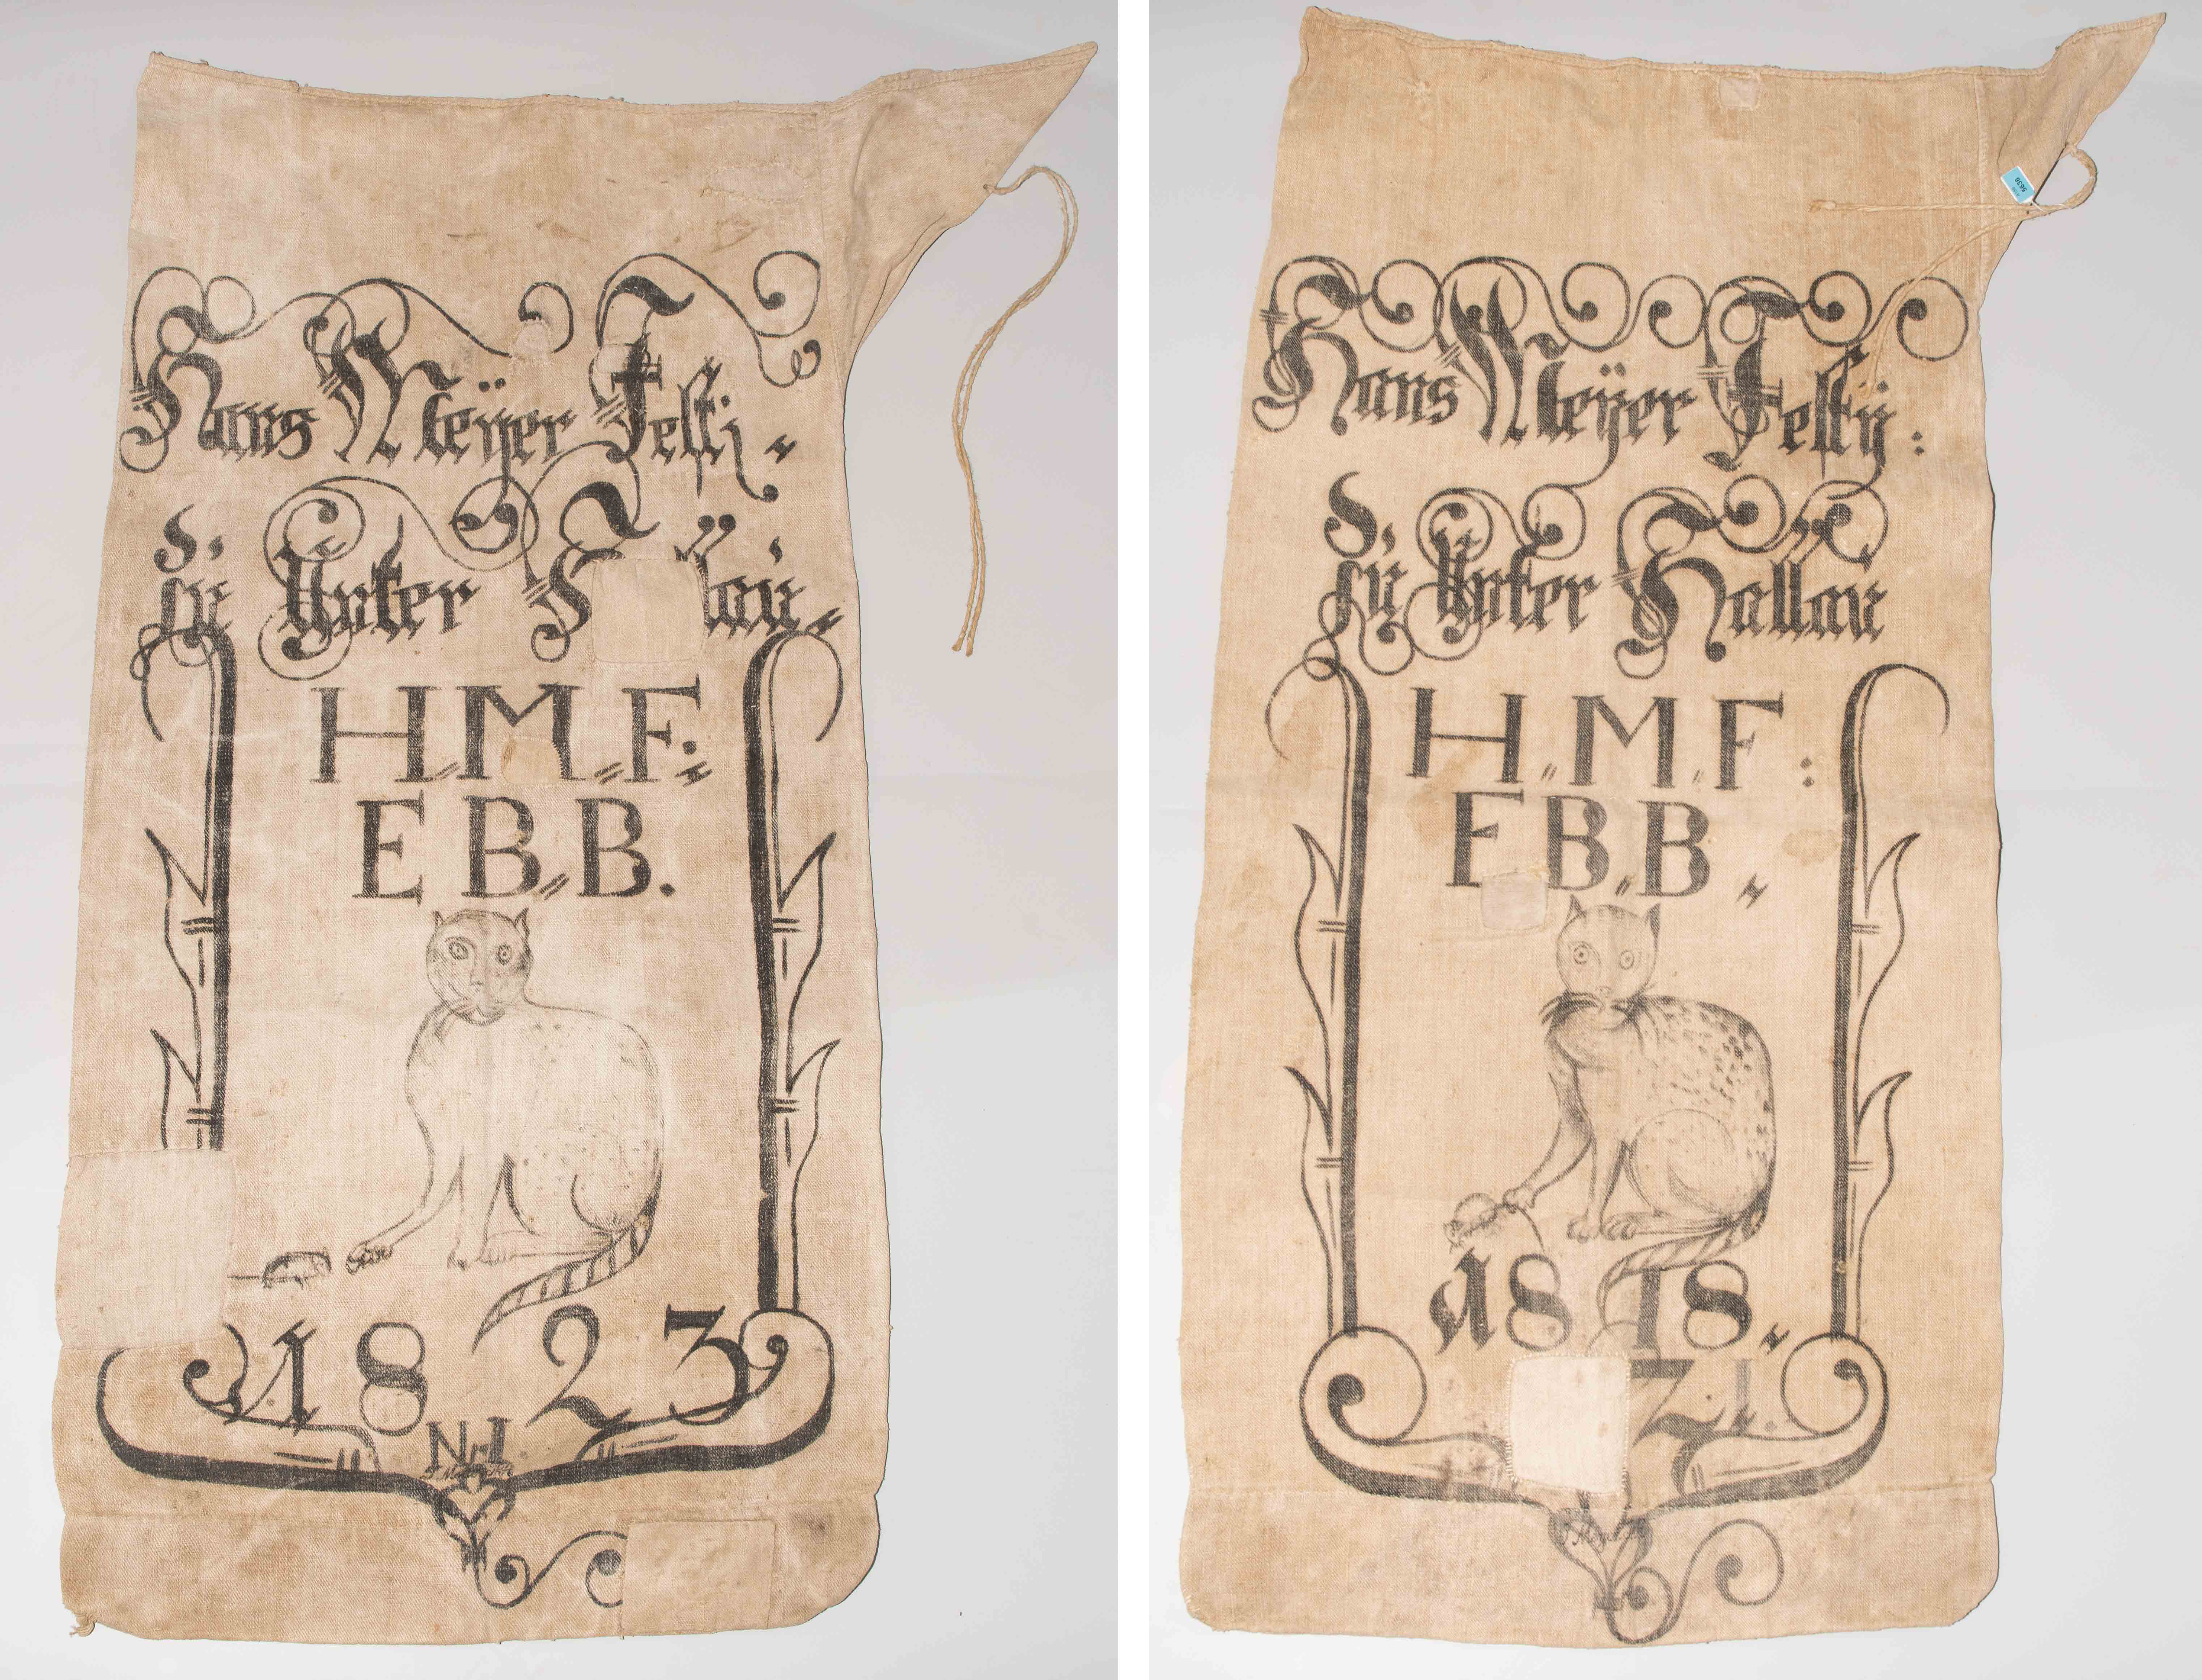 Hans Meÿer Festi
d.
zu Unter H lau
H.M.F.
E B.B.
1823
N. 1
5636
Hans Meÿer Festÿ:
d.
zu Unter Hallau
H.M.F:
E B.B.
1818.
Z 1.